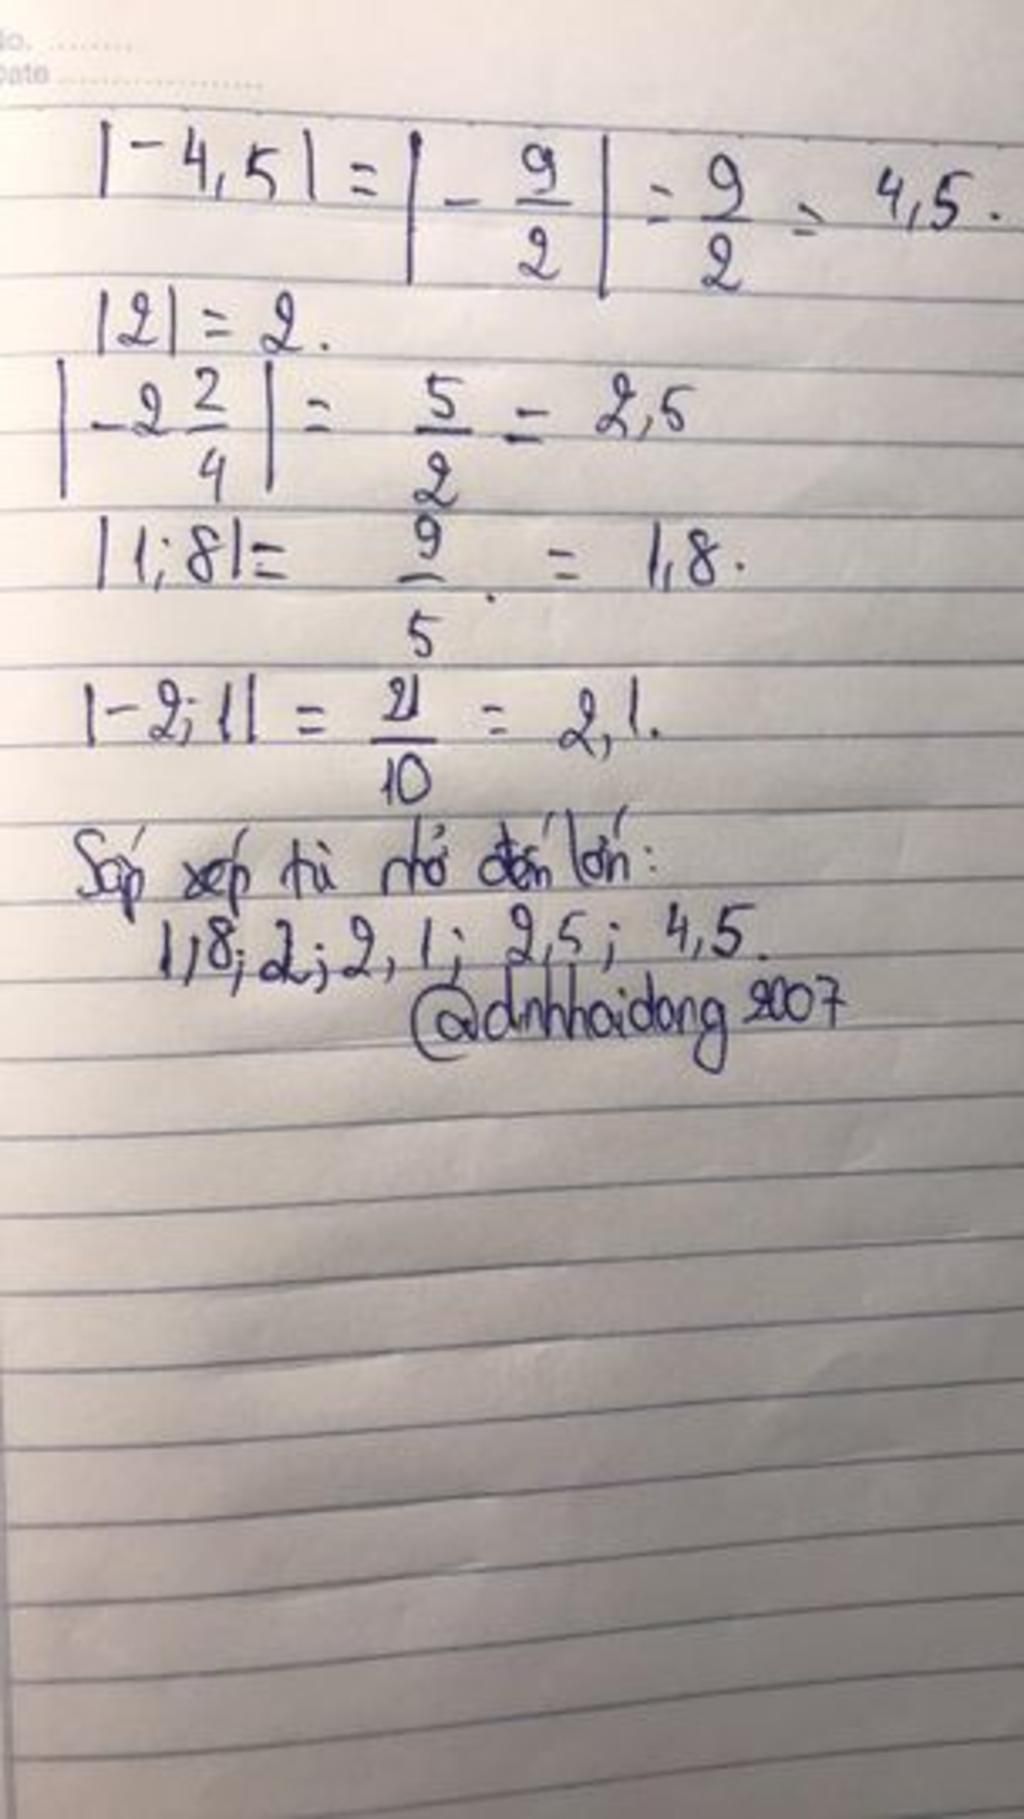 No. ........
Date ....................
|-4,5| = |-9/2| = 9/2 = 4,5.
|2| = 2.
|-2 2/4| = 5/2 = 2,5
|1;8| = 9/5. = 1,8.
|-2;1| = 21/10 = 2,1.
Sắp xếp từ nhỏ đến lớn:
1,8; 2; 2,1; 2,5; 4,5.
@dinhhaidang 2007